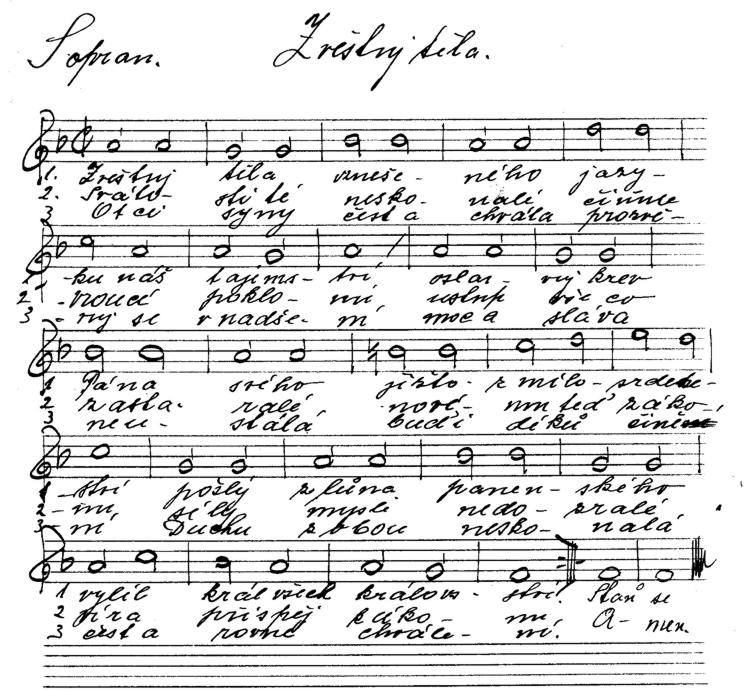 Sopran. Zvěstuj těla.
1. Zvěstuj těla vzneše- ného jazy-
2. Sváto- sti té nesko- nalé čiňme
3 Otci synu čest a chvála prozvě-
1 -ku náš tajems- tví, oslav- uj krev
2 -vroucí poklo- nu, ustup vše co
3 -uj se v nadše- ní moc a sláva
1 Pána svého jížto z milo- srden-
2 zasta- ralé, nové- mu teď záko-
3 neu- stálá buď i díků činění
1 -ství pošlý z lůna panen- ského
2 -nu, síly mysli nedo- zralé
3 -ní Duchu z obou nesko- nalá
1 vylil král všech králov- ství.
2 víra přispěj k úko- nu.
3 čest a rovné chvále- ní.
Staň se
A- men.